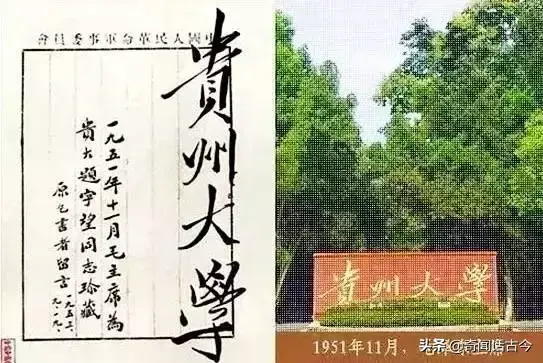 中國人民革命軍事委員會
貴州大學
一九五一年十一月毛主席為
貴大題字望同志珍藏
原乞書者留言
貴州大學
1951年11月，
头条@奇闻皓古今